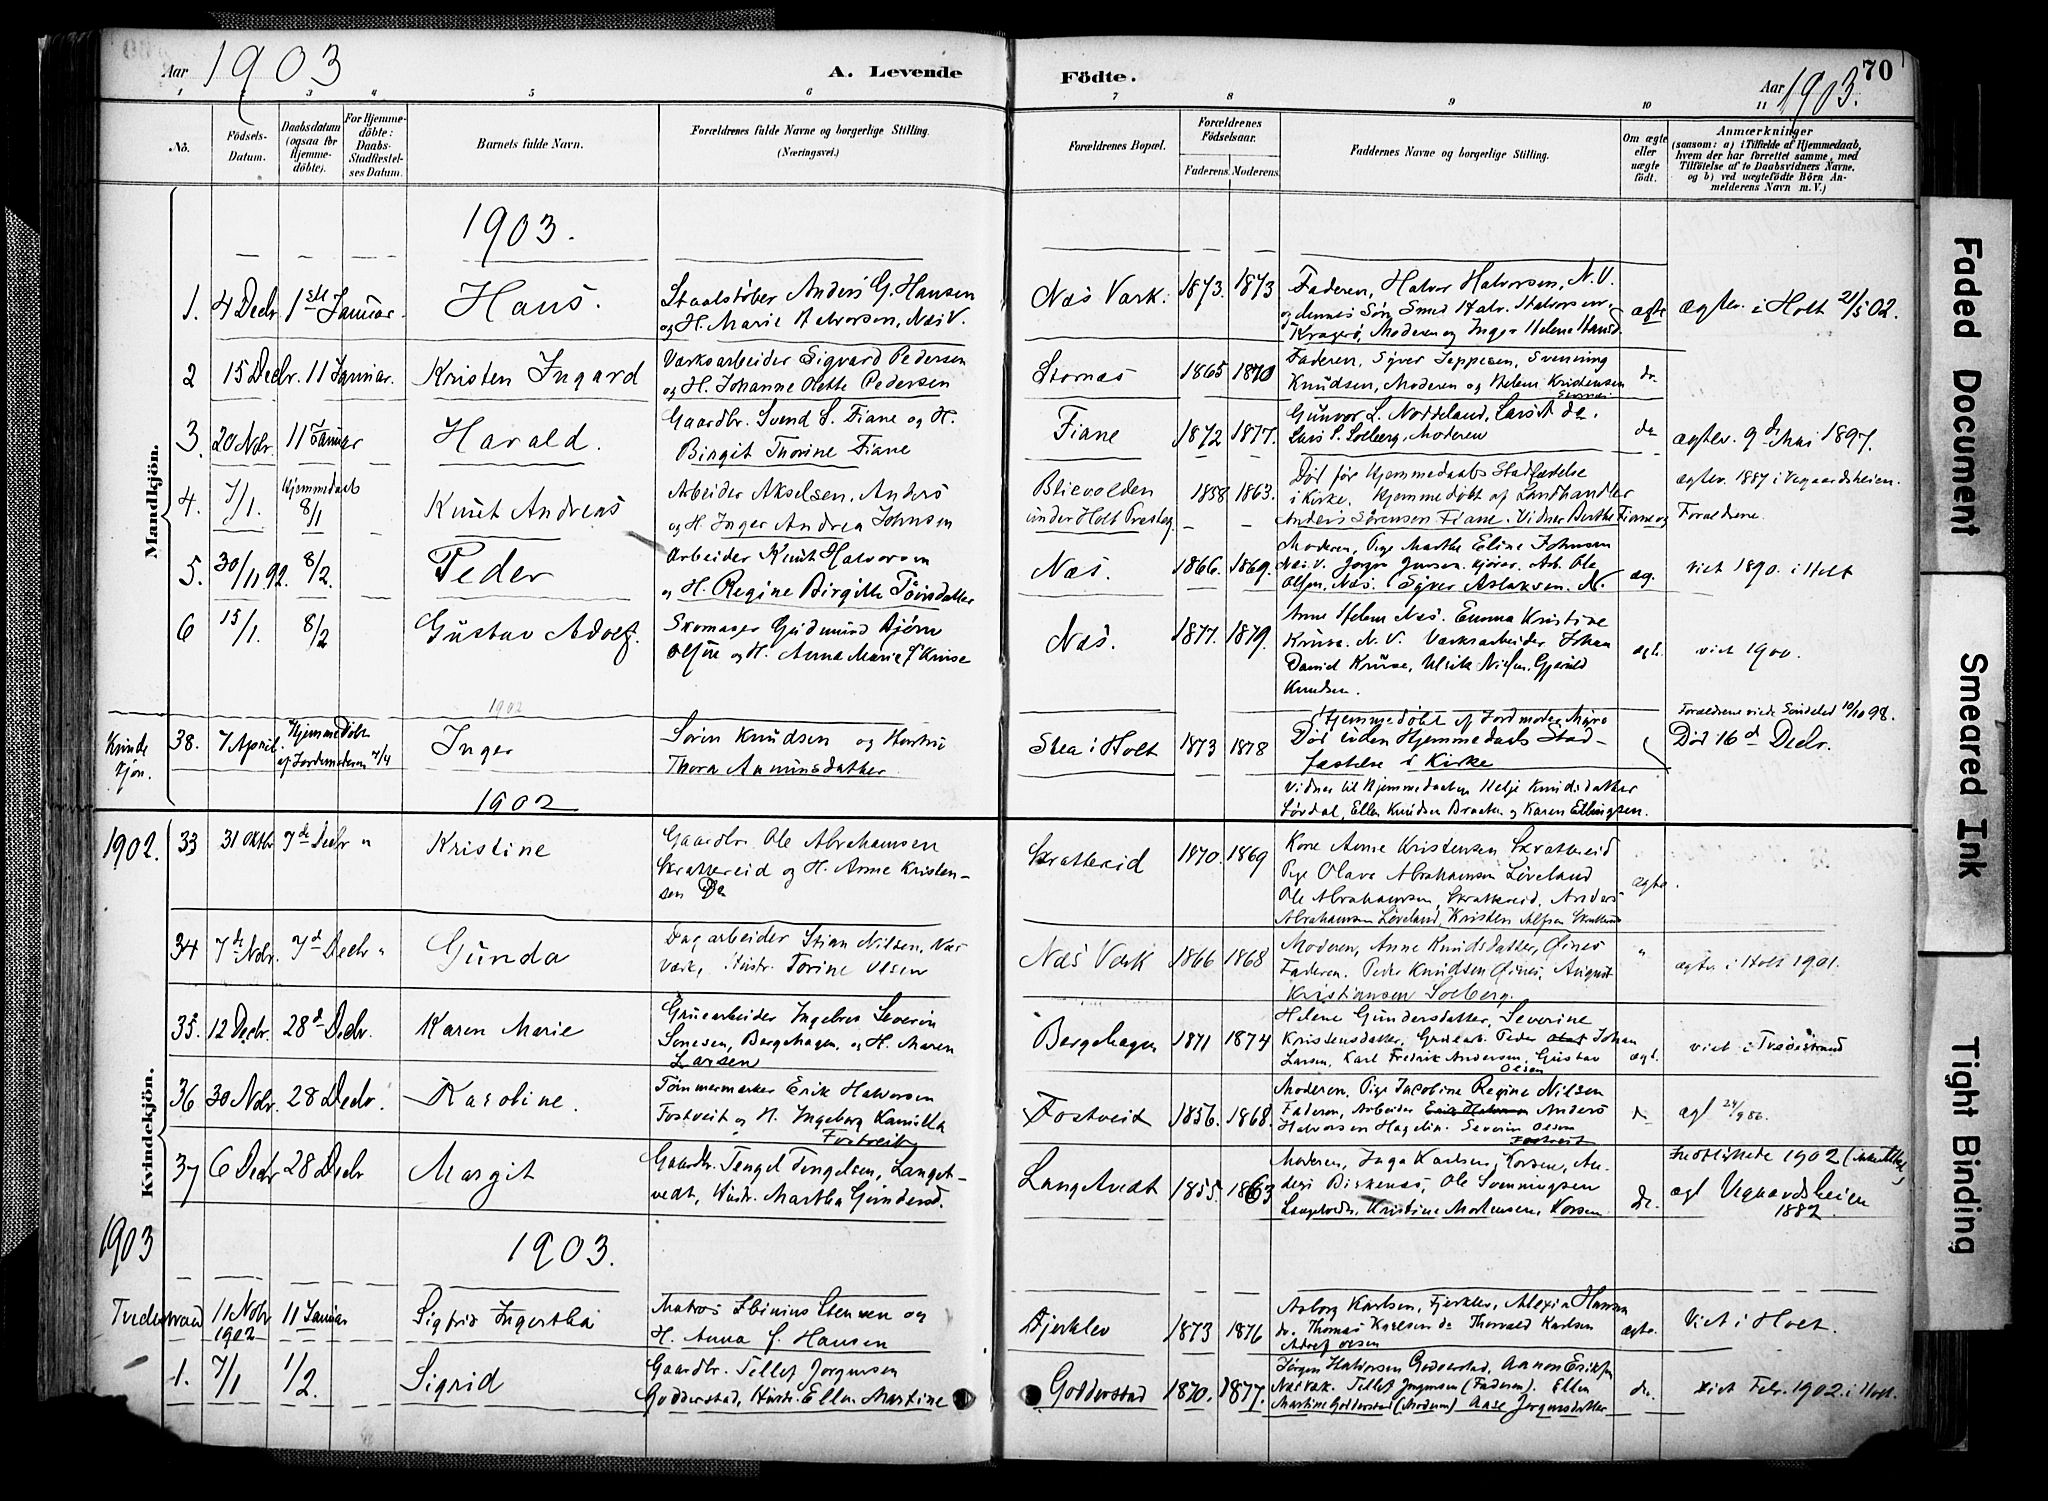 Aar 1903
A. Levende
Födte.
Aar 1903.
70
1 2 3 4 5 6 7 8 9 10 11
No.
Födsels-Datum.
Daabsdatum (ogsaa for Hjemme-döbte).
For Hjemme-döbte: Daabs-Stadfæstel-ses Datum.
Barnets fulde Navn.
Forældrenes fulde Navne og borgerlige Stilling. (Næringsvei.)
Forældrenes Bopæl.
Forældrenes Födselsaar.
Faderens. Moderens.
Faddernes Navne og borgerlige Stilling.
Om ægte eller uægte födt.
Anmærkninger
(saasom: a) i Tilfælde af Hjemmedaab, hvem der har forrettet samme, med Tilföielse af to Daabsvidners Navne, og b) ved uægtefödte Börn An-melderens Navn m. V.)
Mandkjön.
1903.
1. 4 Decbr 1ste Januar Hans.
Staalstøber Anders G. Hansen
og H. Marie Halvorsen, Næs V.
Næs Værk. 1873. 1873
Faderen, Halvor Halvorsen, N. V.
og dennes Søn Smed Halv. Halvorsen,
Kragerø, Moderen og Inger Helene Hansd.
ægte
ægtev. i Holt 21/5 02.
2 15 Decbr. 11 Januar. Kristen Ingard
Værksarbeider Sigvard Pedersen
og H. Johanne Olette Pedersen
Stornæs 1865 1870
Faderen, Syver Jeppesen, Svenning
Knudsen, Moderen og Helene Kristensen
do
3. 20 Nobr. 11 Januar Harald.
Gaardbr. Svend S. Fiane og H.
Birgit Thorine Fiane
Fiane 1872 1877.
Gunvor L. Noddeland, Lars A do.
Lars P. Solberg, Moderen
do
ægtev. 9de Mai 1897.
4. 7/1. Hjemmedaab 8/1 Knut Andreas
Arbeider Akselsen, Anders
og H. Inger Andrea Johnsen
Blievolden
under Holt Presteg.
1858 1863.
Død før Hjemmedaabs Stadfæstelse
i Kirke. Hjemmedøbt af Landhandler
Anders Sørensen Fiane. Vidner Berthe Fiane og
ægtev. 1887 i Vegaardsheien.
Forældrene.
5. 30/11 92. 8/2. Peder
Arbeider Knut Halvorsen
og H. Regine Birgitte Tønsdatter
Næs. 1866. 1869.
Moderen, Pige Marthe Eline Johnsen
Næs V. Jørgen Jensen, Arb. Ole
Olsen, Næs. Syver Aslaksen. N.
æg.
viet 1890. i Holt
6 15/1. 8/2 Gustav Adolf.
Skomager Gudmund Bjørn
Olsen og H. Anna Marie f Kruse
Næs. 1877. 1879.
Anne Helene Næs. Emma Kristine
Kruse. N. V. Værksarbeider Johan
David Kruse, Ulrik Nilsen, Gjerulf
Knudsen.
ægt.
viet 1900.
1902
Kvinde
kjøn.
38. 7 April. Hjemmedøbt
af Jordemoderen 7/4
Inger
Søren Knudsen og Hustru
Thora Aanunsdatter
Stea i Holt 1873 1878
Hjemmedøbt af Jordmoder Myre
Død uden Hjemmedaabs Stad-
fæstelse i Kirke
Vidner til Hjemmedaaben Helje Knudsdatter
Løvdal, Ellen Knudsen Braaten og Karen Ellingsen.
Forældrene viede Søndeled 10/10 98.
Død 16de Decbr.
1902
Kvindekjön.
1902.
33 31 Oktbr 7de Decbr " Kristine
Gaardbr. Ole Abrahamsen
Skrattereid og H. Anne Kristen-
sen Do
Skrattereid 1870. 1869
Kone Anne Kristensen Skrattereid
Pige Olave Abrahamsen Løveland
Ole Abrahamsen, Skrattereid, Anders
Abrahamsen Løveland, Kristen Alfsen
ægte.
34 7de Nobr. 7d Decbr " Gunda
Dagarbeider Stian Nilsen, Næs
Værk, Hustr. Torine Olsen
Næs Værk 1866 1868
Moderen, Anne Knudsdatter, Øines
Faderen. Peder Knudsen Øines, August
Kristiansen Solberg.
"
ægtev. i Holt 1901.
35 12 Decbr. 28d Decbr. Karen Marie
Grubearbeider Ingebret Severin
Sonesen, Bergehagen, og H. Maren
Larsen
Bergehagen 1871 1874
Helene Gundersdatter, Severine
Kristensdatter, Grubearb. Peder Johan
Larsen, Karl Fredrik Andersen, Gustav
Olsen
ægt.
viet i Tvedestrand
36 30 Nobr. 28 Decbr. Karoline.
Tømmermærker Erik Halvorsen
Fostveit og H. Ingeborg Kamilla
Fostveit
Fostveit 1856. 1868.
Moderen, Pige Jacobine Regine Nilsen
Faderen, Arbeider Anders
Halvorsen Hagelia. Severin Olsen
Fostveit
do
ægt 24/9 86.
37 6 Decbr 28 Decbr Margit
Gaardbr. Tengel Tengelsen, Langt-
vedt, Hustr. Martha Gundersd.
Langtvedt 1855. 1863
Moderen, Inga Karlsen, Korsen, An-
ders Birkenæs, Ole Svenningsen
Langtvedt, Kristine Mortensen, Korsen.
do.
Indflyttede 1902
ægt Vegaardsheien
1882.
1903
1903.
Tvedestrand 11 Nobr
1902
11 Januar Sigfrid Ingertha
Matros Ibinius Stensen og
H. Anna f. Hansen
Djerklev 1873 1876
Aslborg Karlsen, Fjerklev, Alexia Hansen
do. Thomas Karlsen do Thorvald Karlsen
Adref Olsen
ægte.
Viet i Holt.
1. 7/1 1/2. Sigrid
Gaardbr. Tellef Jørgensen
Godderstad, Hustr. Ellen Martine
Godderstad 1870. 1877.
Jørgen Halvorsen Godderstad, Aanon Eriksen
Næs Værk. Tellef Jørgensen (Faderen). Ellen
Martine Godderstad (Moderen) Aase Jørgensdatter
do.
viet Febr. 1902. i Holt.
Faded Document
Smeared Ink
Tight Binding